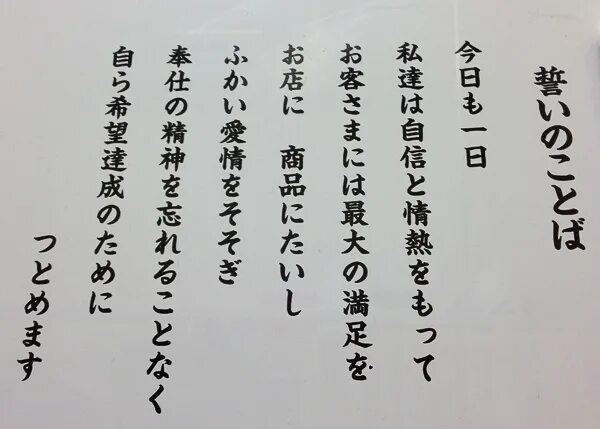 誓いのことば
今日も一日
私達は自信と情熱をもって
お客さまには最大の満足を
お店に　商品にたいし
ふかい愛情をそそぎ
奉仕の精神を忘れることなく
自ら希望達成のために
つとめます